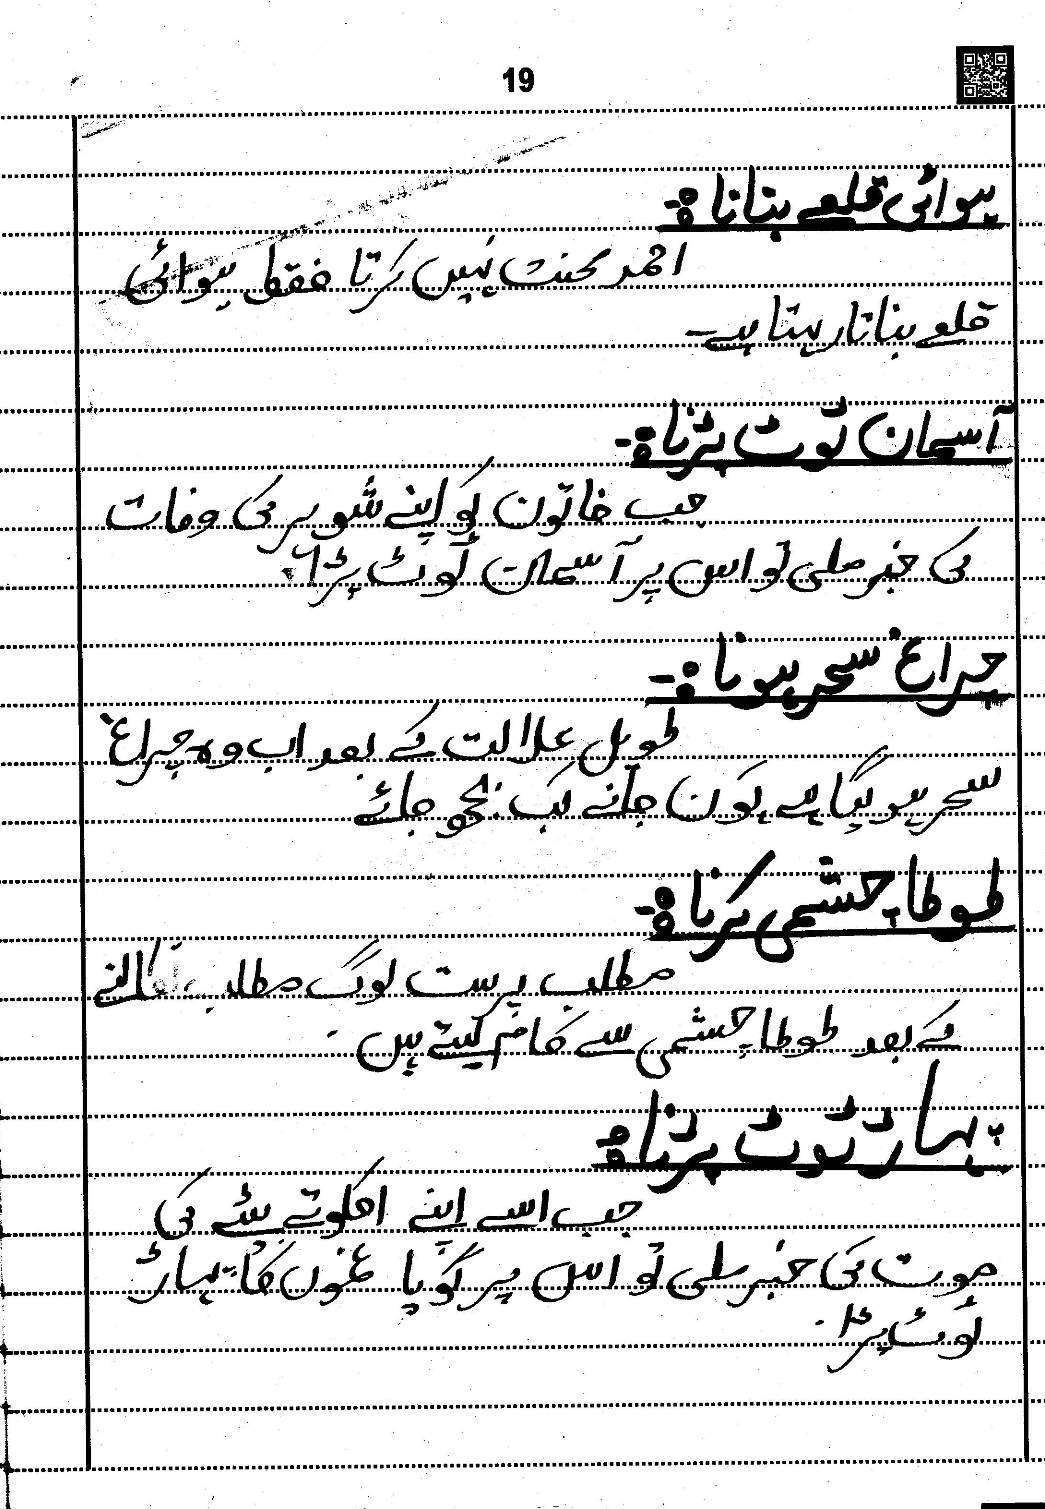 19
ہوائی قلعے بنانا:-
احمد محنت نہیں کرتا فقط ہوائی
قلعے بناتا رہتا ہے۔
آسمان ٹوٹ پڑنا:-
جب خاتون کو اپنے شوہر کی وفات
کی خبر ملی تو اس پر آسمان ٹوٹ پڑا۔
چراغ سحر ہونا:-
طویل علالت کے بعد اب وہ چراغ
سحر ہو گیا ہے کون جانے کب بجھ جائے
طوطا چشمی کرنا:-
مطلب پرست لوگ مطلب نکالنے
کے بعد طوطا چشمی سے کام لیتے ہیں۔
پہاڑ ٹوٹ پڑنا:
جب اسے اپنے اکلوتے بیٹے کی
موت کی خبر ملی تو اس پر گویا غموں کا پہاڑ
ٹوٹ پڑا۔